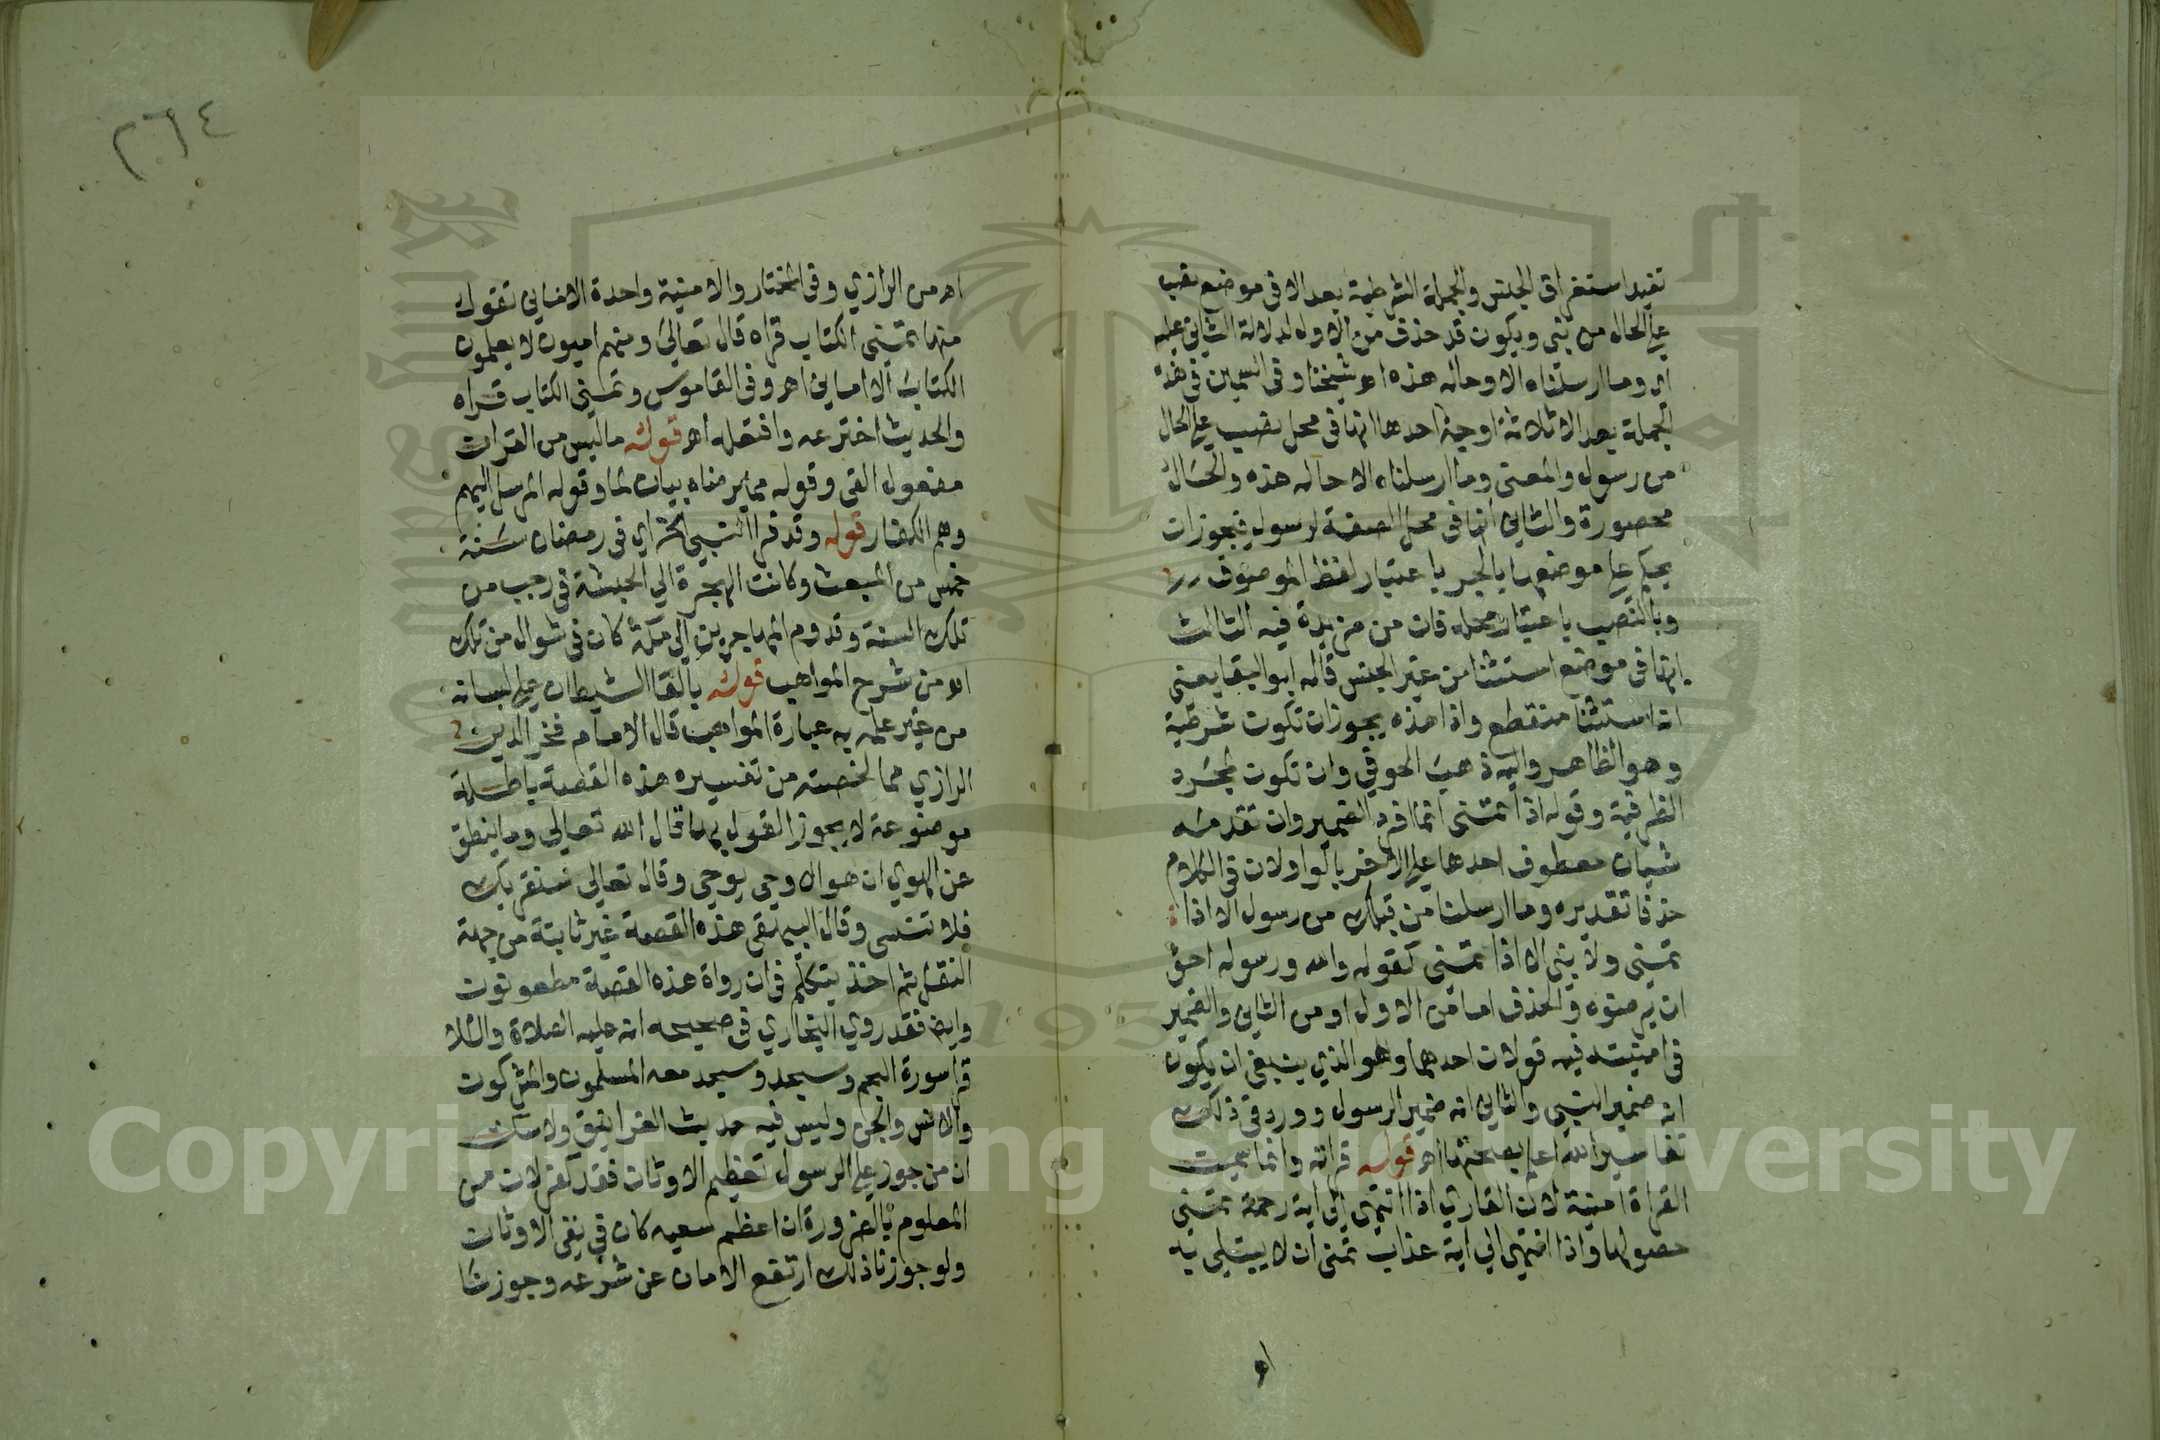 تفيد استغراق الجنس والجملة الشرطية بعد الا في موضع نصب
على الحال من نبي ويكون قد حذف من الاول لدلالة الثاني عليه
اي وما ارسلناه الا وحاله هذه اهر شيخنا وفي السمين في هذه
الجملة بعد الا ثلاثة اوجه احدها انها في محل نصب على الحال
من رسول والمعنى وما ارسلناه الا حاله هذه والحال
محصورة والثاني انها في محل الصفة لرسول فيجوز ان
يحكم على موضعها بالجر باعتبار لفظ الموصوف
وبالنصب باعتبار محله فان من مزيدة فيه الثالث
انها في موضع استثنا من غير الجنس قاله ابو البقا يعني
انه استثنا منقطع واذا هذه يجوز ان تكون شرطية
وهو الظاهر واليه ذهب الحوفي وان تكون لمجرد
الظرفية وقوله اذا تمنى انما افرد الضمير وان تقدمه
شيان معطوف احدها على الاخر بالواو لان في الكلام
حذفا تقديره وما ارسلنا من قبلك من رسول الا اذا
تمنى ولا نبي الا اذا تمنى كقوله والله ورسوله احق
ان يرضوه والحذف اما من الاول او من الثاني والضمير
في امنيته فيه قولان احدهما وهو الذي ينبغي ان يكون
انه ضمير النبي والثاني انه ضمير الرسول وورد في ذلك
تفاسير الله اعلم بصحتها اهر قوله قرأته وانما سميت
القراة امنية لان القاري اذا انتهى الى اية رحمة تمنى
حصولها واذا انتهى الى اية عذاب تمنى ان لا يبتلى به
اه
٢٦٤
اهر من الرازي وفي المختار والامنية واحدة الاماني تقول
منها تمنى الكتاب قراه قال تعالى ومنهم اميون لا يعلمون
الكتاب الا اماني اهر وفي القاموس وتمنى الكتاب قراه
والحديث اخترعه وافتعله اهر قوله ما ليس من القران
مفعول القى وقوله مما يرضاه بيان لما وقوله المرسل اليهم
وهم الكفار قوله وقد قرا النبي الخ اي في رمضان سنة
خمس من المبعث وكانت الهجرة الى الحبشة في رجب من
تلك السنة وقدوم المهاجرين الى مكة كان في شوال من تلك
اهر من شرح المواهب قوله بالقا الشيطان على لسانه
من غير علمه به عبارة المواهب قال الامام فخر الدين
الرازي مما لخصته من تفسيره هذه القصة باطلة
موضوعة لا يجوز القول بها قال الله تعالى وما ينطق
عن الهوى ان هو الا وحي يوحى وقال تعالى سنقرئك
فلا تنسى وقال البيهقي هذه القصة غير ثابتة من جهة
النقل ثم اخذ يتكلم في ان رواة هذه القصة مطعونون
وايضا فقد روى البخاري في صحيحه انه عليه الصلاة والسلا
قرا سورة النجم وسجد وسجد معه المسلمون والمشركون
والانس والجن وليس فيه حديث الغرانيق ولا شك
ان من جوز على الرسول تعظيم الاوثان فقد كفر لان من
المعلوم بالضرورة ان اعظم سعيه كان في نفي الاوثان
ولو جوزنا ذلك ارتفع الامان عن شرعه وجوزنا
Copyright © King Saud University